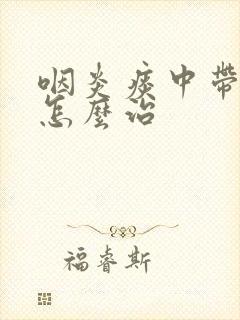 咽炎痰中帶
怎麼治
福睿斯